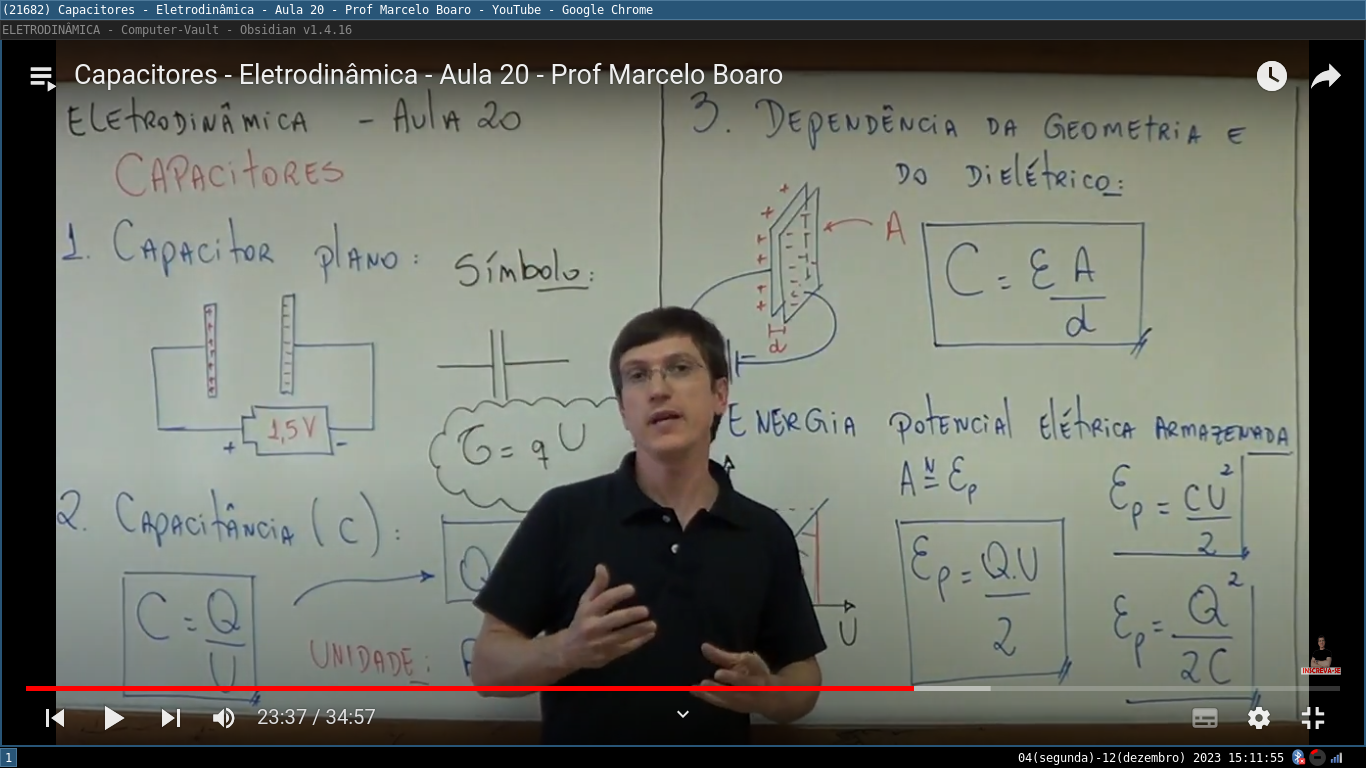 (21682) Capacitores - Eletrodinâmica - Aula 20 - Prof Marcelo Boaro - YouTube - Google Chrome
ELETRODINÂMICA - Computer-Vault - Obsidian v1.4.16
Capacitores - Eletrodinâmica - Aula 20 - Prof Marcelo Boaro
ELETRODINÂMICA - AULA 20
CAPACITORES
1. CAPACITOR PLANO:
SÍMBOLO:
+ + + + + + +
- - - - - - -
+ 1,5 V -
τ = q U
2. CAPACITÂNCIA (C):
C = Q / U
Q
UNIDADE:
3. DEPENDÊNCIA DA GEOMETRIA E
DO DIELÉTRICO:
A
d
C = ε A / d
ENERGIA POTENCIAL ELÉTRICA ARMAZENADA
A ≝ Ep
U
Ep = Q.U / 2
Ep = CU² / 2
Ep = Q² / 2C
INSCREVA-SE
23:37 / 34:57
1
04(segunda)-12(dezembro) 2023 15:11:55